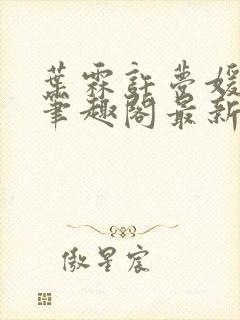 葉霖許夢媛
筆趣閣最新
傲星宸